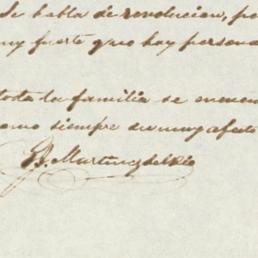 Se habla de revolucion, po
muy fuerte que hay persona
toda la familia se encuen
como siempre su muy afecto
P. Martinez del Rio